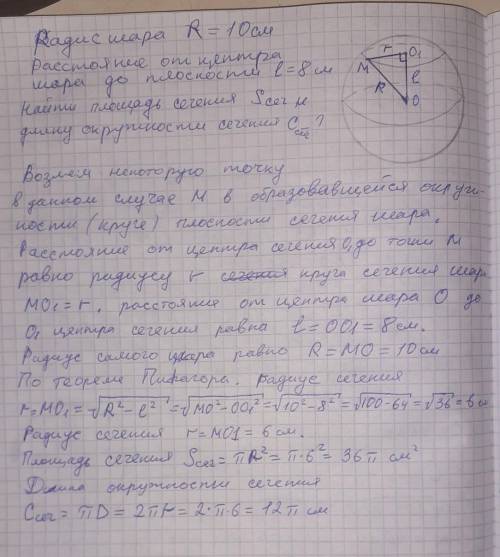 Радис шара R = 10см
Расстояние от центра
шара до плоскости l = 8 м
Найти площадь сечения Sсеч и
длину окружности сечения Cсеч ?
r O₁
M l
R O
Возмем некоторую точку
в данном случае M в образовавщейся окруж-
ности (круге) плоскости сечения шара.
Расстояние от центра сечения O₁ до точки M
равно радиусу r сечения круга сечения шара
MO₁ = r, расстояние от центра шара O до
O₁ центра сечения равна l = OO1 = 8 см.
Радиус самого шара равно R = MO = 10 см
По теореме Пифагора. радиус сечения
r = MO₁ = √R² - l² = √MO² - OO₁² = √10² - 8² = √100 - 64 = √36 = 6 см
Радиус сечения r = MO1 = 6 см.
Площадь сечения Sсеч = πR² = π·6² = 36π см²
Длина окружности сечения
Cсеч = πD = 2πr = 2·π·6 = 12π см